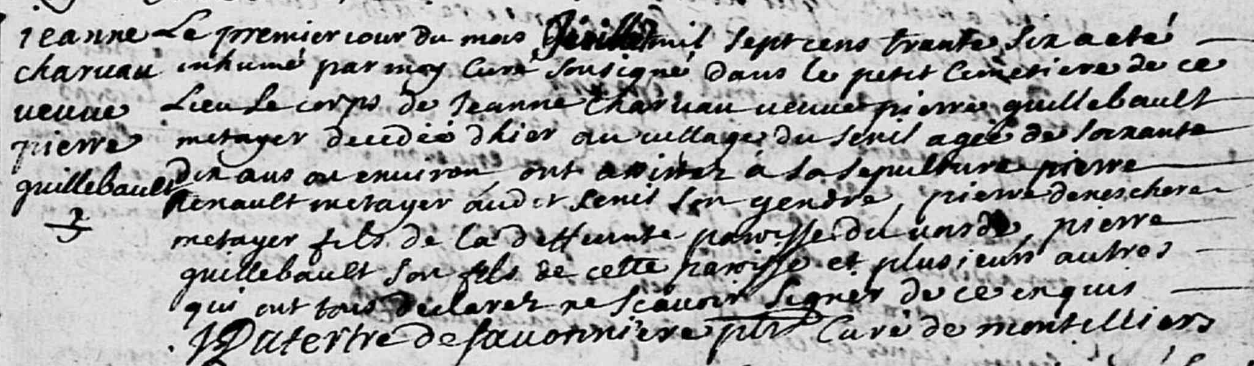 jeanne
charuau
veuve
pierre
guillebault
3
Le premier jour du mois Juillet mil sept cens trante six a eté
inhumé par moy Curé sousigné dans le petit Cimetiere de ce
Lieu le corps de jeanne Charuau veuve pierre guillebault
metayer decedée d'hier au village du senil agée de soixante
dix ans ou environ ont assistez à sa sepulture pierre
Renault metayer audit senil son gendre, pierre deneschere
metayer fils de la deffunte paroisse du voide, pierre
guillebault son fils de cette paroisse et plusieurs autres
qui ont tous declarez ne scavoir signer de ce enquis
Dutertre de savonniere ptre Curé de montilliers